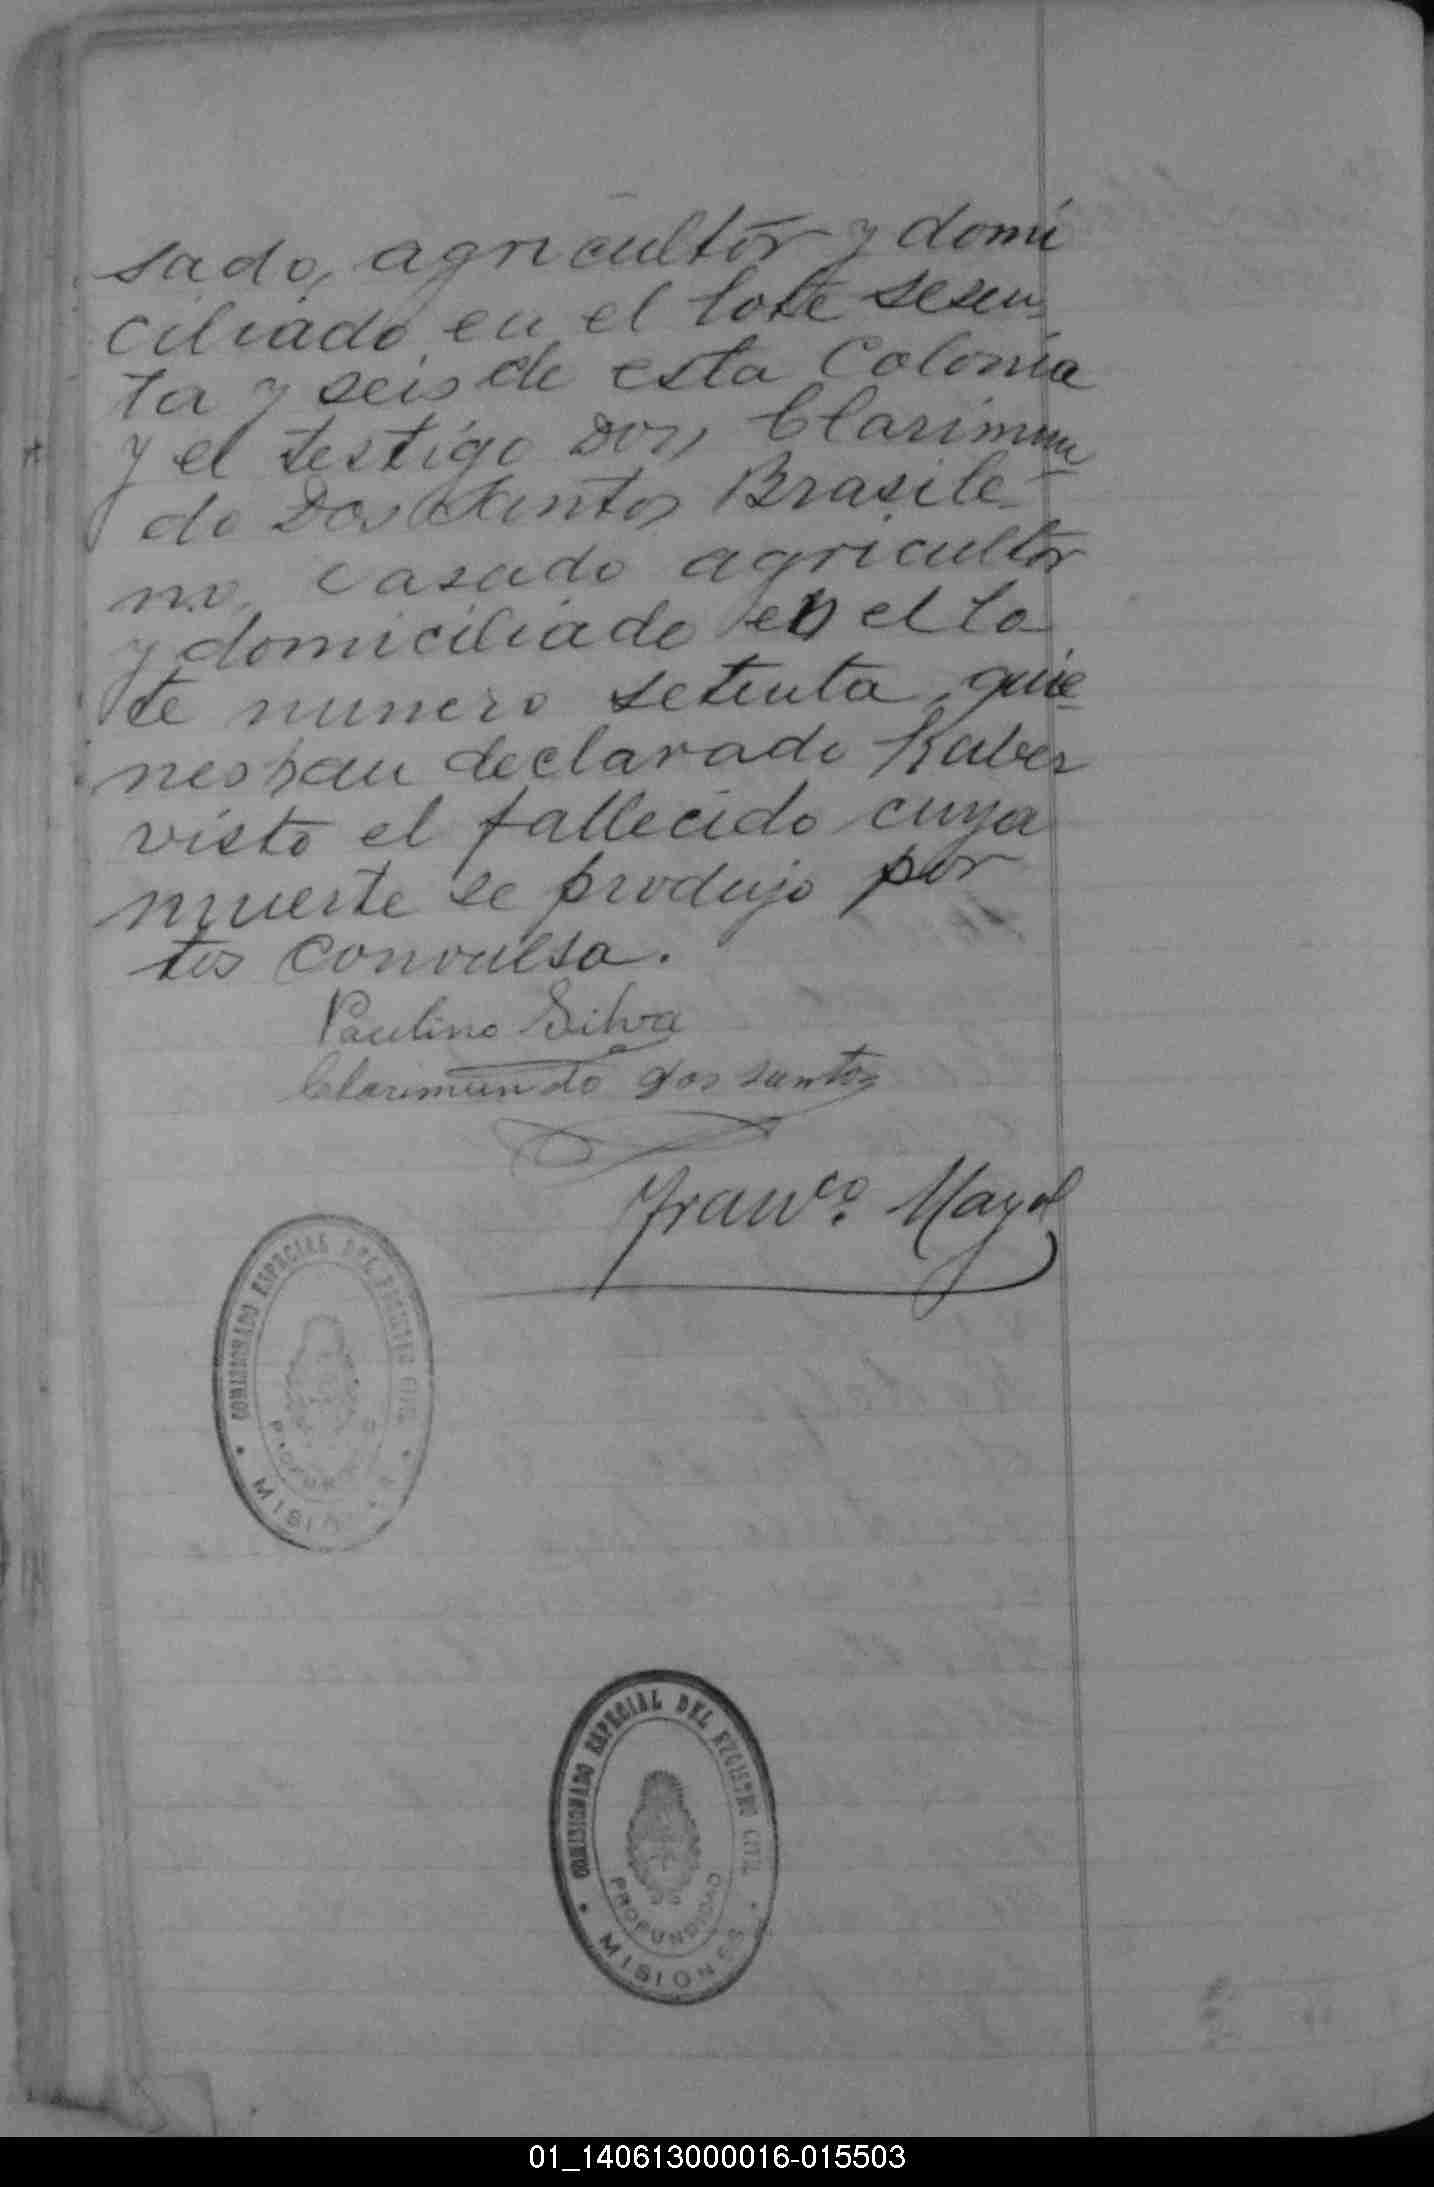 sado, agricultor y domi
ciliado en el lote sesen
ta y seis de esta Colonia
y el testigo Don Clarimun
do Dos Santos Brasile
no, casado agricultor
y domiciliado en el lo
te numero setenta, quie
nes han declarado haber
visto el fallecido cuya
muerte se produjo por
tos convulsa.
Paulino Silva
Clarimundo dos santos
Franco. Mayol
COMISIONADO ESPECIAL DEL REGISTRO CIVIL
PROFUNDIDAD
MISIONES
COMISIONADO ESPECIAL DEL REGISTRO CIVIL
PROFUNDIDAD
MISIONES
01_140613000016-015503